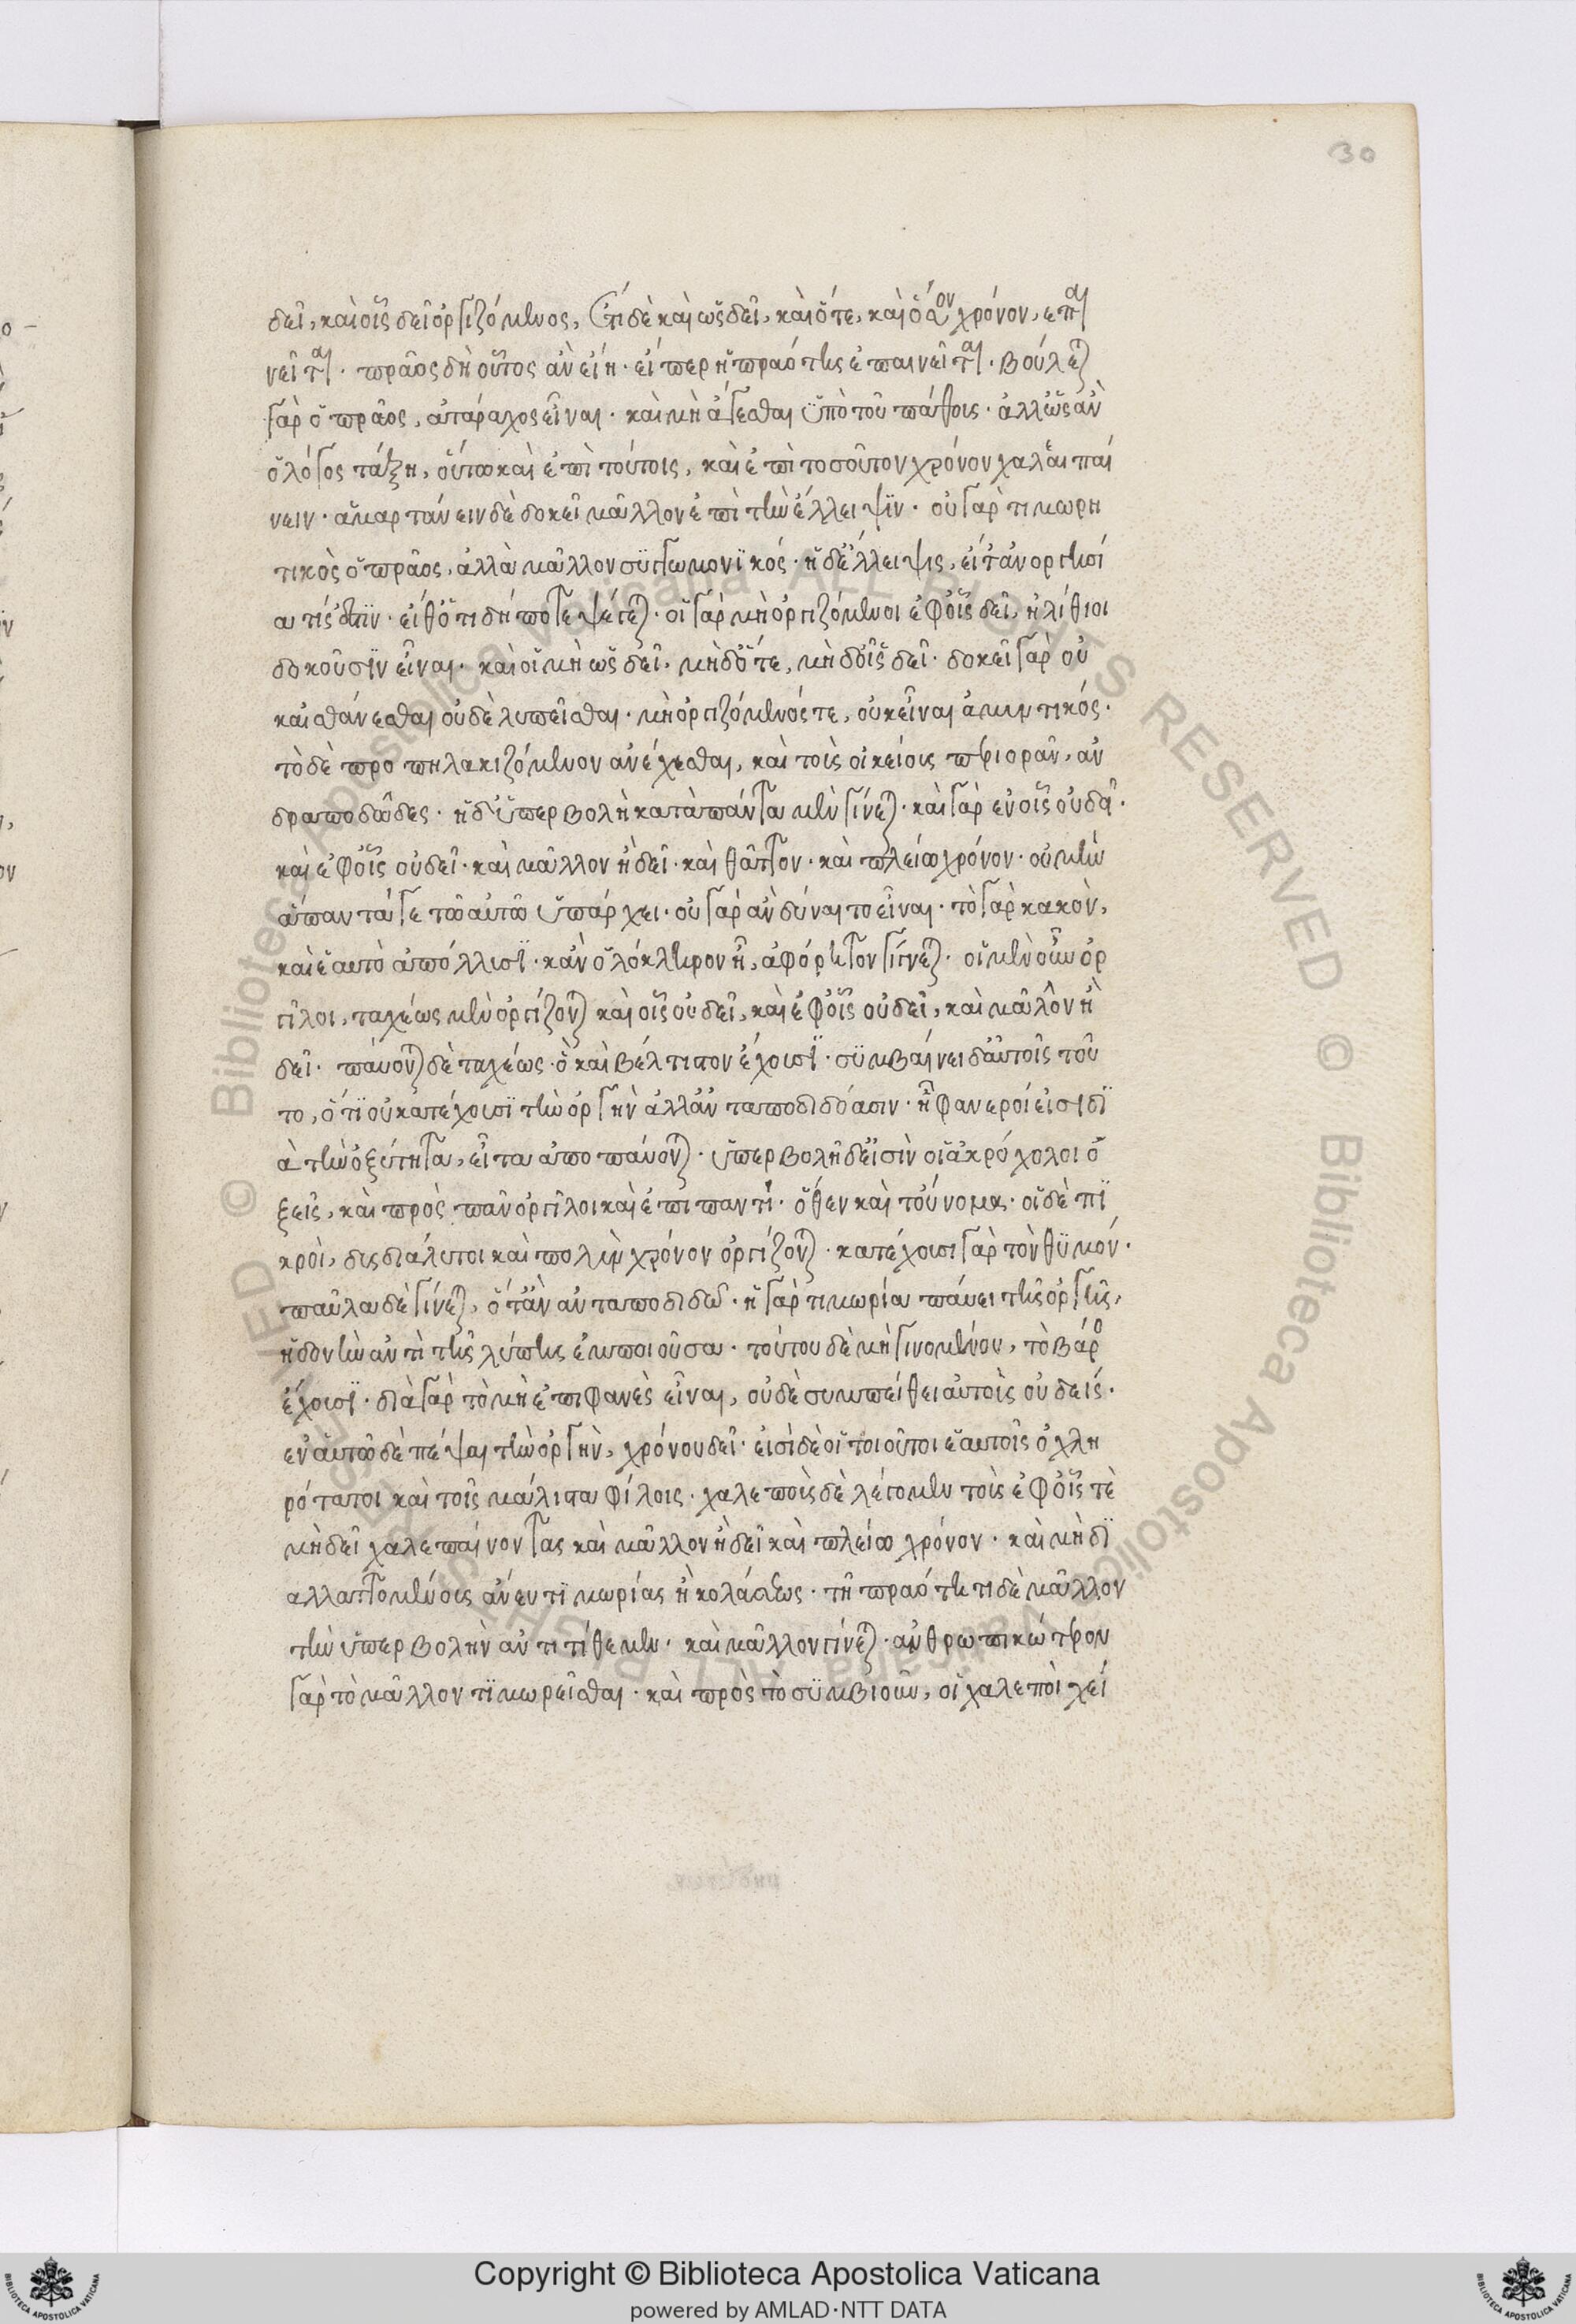 30
δεῖ, καὶ οἷς δεῖ ὀργιζόμενος, ἔτι δὲ καὶ ὡς δεῖ, καὶ ὅτε, καὶ ὅσον χρόνον, ἐπαι
νεῖται. πρᾶος δὴ οὗτος ἂν εἴη. εἴπερ ἡ πραότης ἐπαινεῖται. βούλεται
γὰρ ὁ πρᾶος, ἀτάραχος εἶναι. καὶ μὴ ἄγεσθαι ὑπὸ τοῦ πάθους. ἀλλ' ὡς ἂν
ὁ λόγος τάξῃ, οὕτω καὶ ἐπὶ τούτοις, καὶ ἐπὶ τοσοῦτον χρόνον χαλεπαί
νειν. ἁμαρτάνειν δὲ δοκεῖ μᾶλλον ἐπὶ τὴν ἔλλειψιν. οὐ γὰρ τιμωρη
τικὸς ὁ πρᾶος, ἀλλὰ μᾶλλον συγγνωμονικός. ἡ δ' ἔλλειψις, εἴτ' ἀοργησί
α τίς ἐστιν. εἴθ' ὅ τι δή ποτε ψέγεται. οἱ γὰρ μὴ ὀργιζόμενοι ἐφ' οἷς δεῖ, ἠλίθιοι
δοκοῦσιν εἶναι. καὶ οἱ μὴ ὡς δεῖ. μὴδ' ὅτε, μὴδ' οἷς δεῖ. δοκεῖ γὰρ οὐ
κ αἰσθάνεσθαι οὐδὲ λυπεῖσθαι. μὴ ὀργιζόμενός τε, οὐκ εἶναι ἀμυντικός.
τὸ δὲ προπηλακιζόμενον ἀνέχεσθαι, καὶ τοὺς οἰκείους περιορᾶν, ἀν
δραποδῶδες. ἡ δ' ὑπερβολὴ κατὰ πάντα μὲν γίνεται. καὶ γὰρ ἐν οἷς οὐ δεῖ.
καὶ ἐφ' οἷς οὐ δεῖ. καὶ μᾶλλον ἢ δεῖ. καὶ θᾶττον. καὶ πλείω χρόνον. οὐ μὴν
ἅπαντά γε τῷ αὐτῷ ὑπάρχει. οὐ γὰρ ἂν δύναιτο εἶναι. τὸ γὰρ κακὸν,
καὶ ἑαυτὸ ἀπόλλυσι. κἂν ὁλόκληρον ᾖ, ἀφόρητον γίγνεται. οἱ μὲν οὖν ὀρ
γίλοι, ταχέως μὲν ὀργίζονται καὶ οἷς οὐ δεῖ, καὶ ἐφ' οἷς οὐ δεῖ, καὶ μᾶλλον ἢ
δεῖ. παύονται δὲ ταχέως. ὃ καὶ βέλτιστον ἔχουσι. συμβαίνει δ' αὐτοῖς τοῦ
το, ὅτι οὐ κατέχουσι τὴν ὀργὴν ἀλλ' ἀνταποδιδόασιν. ᾗ φανεροί εἰσι δι
ὰ τὴν ὀξύτητα, εἶτα ἀποπαύονται. ὑπερβολῇ δ' εἰσὶν οἱ ἀκρόχολοι ὀ
ξεῖς, καὶ πρὸς πᾶν ὀργίλοι καὶ ἐπὶ παντί. ὅθεν καὶ τοὔνομα. οἱ δὲ πι
κροὶ, δυσδιάλυτοι καὶ πολὺν χρόνον ὀργίζονται. κατέχουσι γὰρ τὸν θυμόν.
παῦλα δὲ γίνεται, ὅταν ἀνταποδιδῷ. ἡ γὰρ τιμωρία παύει τῆς ὀργῆς,
ἡδονὴν ἀντὶ τῆς λύπης ἐμποιοῦσα. τούτου δὲ μὴ γινομένου, τὸ βάρος
ἔχουσι. διὰ γὰρ τὸ μὴ ἐπιφανὲς εἶναι, οὐδὲ συμπείθει αὐτοὺς οὐδείς.
ἐν αὑτῷ δὲ πέψαι τὴν ὀργὴν, χρόνου δεῖ. εἰσὶ δὲ οἱ τοιοῦτοι ἑαυτοῖς ὀχλη
ρότατοι καὶ τοῖς μάλιστα φίλοις. χαλεποὺς δὲ λέγομεν τοὺς ἐφ' οἷς τὲ
μὴ δεῖ χαλεπαίνοντας καὶ μᾶλλον ἢ δεῖ καὶ πλείω χρόνον. καὶ μὴ δι
αλλαττομένους ἄνευ τιμωρίας ἢ κολάσεως. τῇ πραότητι δὲ μᾶλλον
τὴν ὑπερβολὴν ἀντιτίθεμεν. καὶ μᾶλλον γίνεται. ἀνθρωπικώτερον
γὰρ τὸ μᾶλλον τιμωρεῖσθαι. καὶ πρὸς τὸ συμβιοῦν, οἱ χαλεποὶ χεί
Copyright © Biblioteca Apostolica Vaticana
powered by AMLAD·NTT DATA